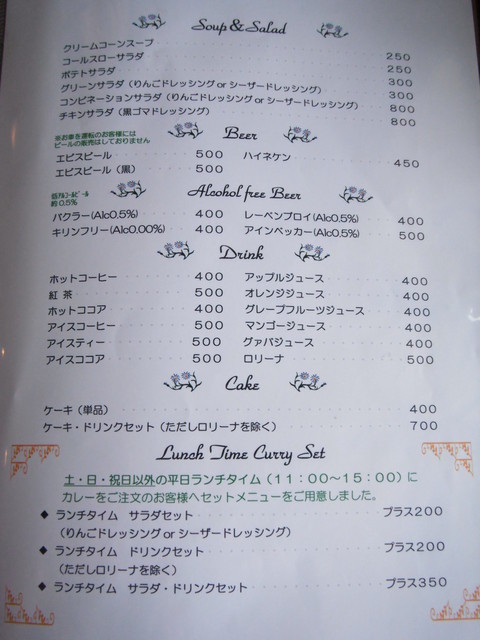 Soup & Salad
クリームコーンスープ 250
コールスローサラダ 250
ポテトサラダ 300
グリーンサラダ（りんごドレッシング or シーザードレッシング） 300
コンビネーションサラダ（りんごドレッシング or シーザードレッシング） 800
チキンサラダ（黒ゴマドレッシング） 800
※お車を運転のお客様には
ビールの販売はしておりません
Beer
エビスビール 500 ハイネケン 450
エビスビール（黒） 500
低アルコールビール
約0.5%
Alcohol free Beer
バクラー(Alc0.5%) 400 レーベンブロイ(Alc0.5%) 400
キリンフリー(Alc0.00%) 400 アインベッカー(Alc0.5%) 500
Drink
ホットコーヒー 400 アップルジュース 400
紅茶 500 オレンジジュース 400
ホットココア 400 グレープフルーツジュース 400
アイスコーヒー 500 マンゴージュース 400
アイスティー 500 グァバジュース 400
アイスココア 500 ロリーナ 500
Cake
ケーキ（単品） 400
ケーキ・ドリンクセット（ただしロリーナを除く） 700
Lunch Time Curry Set
土・日・祝日以外の平日ランチタイム（11：00～15：00）に
カレーをご注文のお客様へセットメニューをご用意しました。
◆ ランチタイム サラダセット プラス200
（りんごドレッシング or シーザードレッシング）
◆ ランチタイム ドリンクセット プラス200
（ただしロリーナを除く）
◆ ランチタイム サラダ・ドリンクセット プラス350